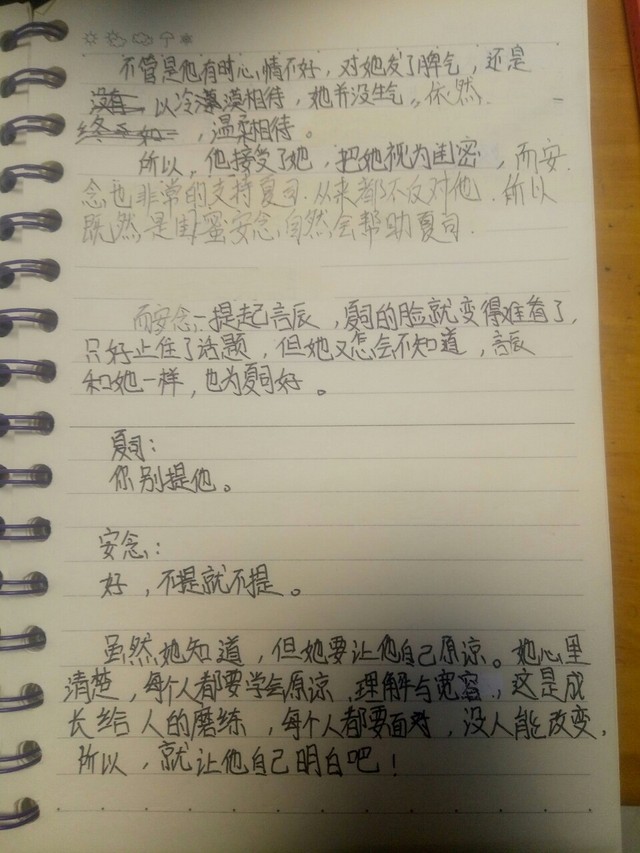 不管是他有时心情不好，对她发了脾气，还是
没有 以冷漠漠相待，她并没生气。依然
终不如，温柔相待。
所以，他接受了她，把她视为闺密，而安
念也非常的支持夏司.从来都不反对他.所以
既然是闺蜜安念自然会帮助夏司.
而安念一提起言辰，夏司的脸就变得难看了，
只好止住了话题，但她又怎会不知道，言辰
和她一样，也为夏司好。
夏司：
你别提他。
安念：
好，不提就不提。
虽然她知道，但她要让他自己原谅。她心里
清楚，每个人都要学会原谅，理解与宽容，这是成
长给人的磨练，每个人都要面对，没人能改变，
所以，就让他自己明白吧！